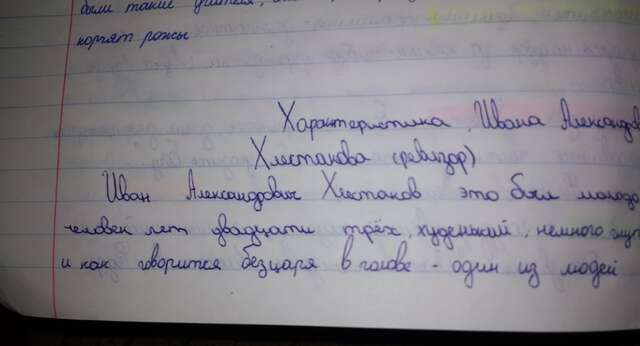 были такие учителя,
корчят рожы
Характеристика, Ивана Александров
Хлестакова (ревизор)
Иван Александрович Хлестаков это был молодо
человек лет двадцати трёх, худенький, немного глуп
и как говорится безцаря в голове - один из людей